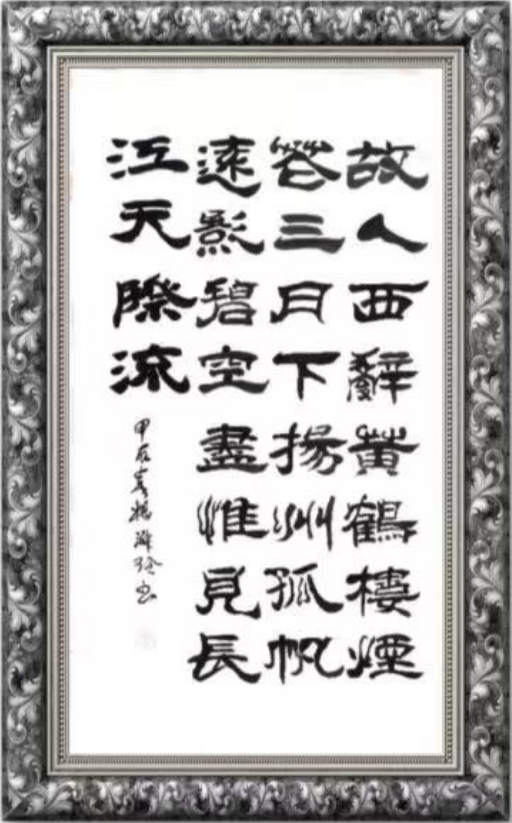 故人西辭黃鶴樓煙
花三月下揚州孤帆
遠影碧空盡惟見長
江天際流
甲辰春楊